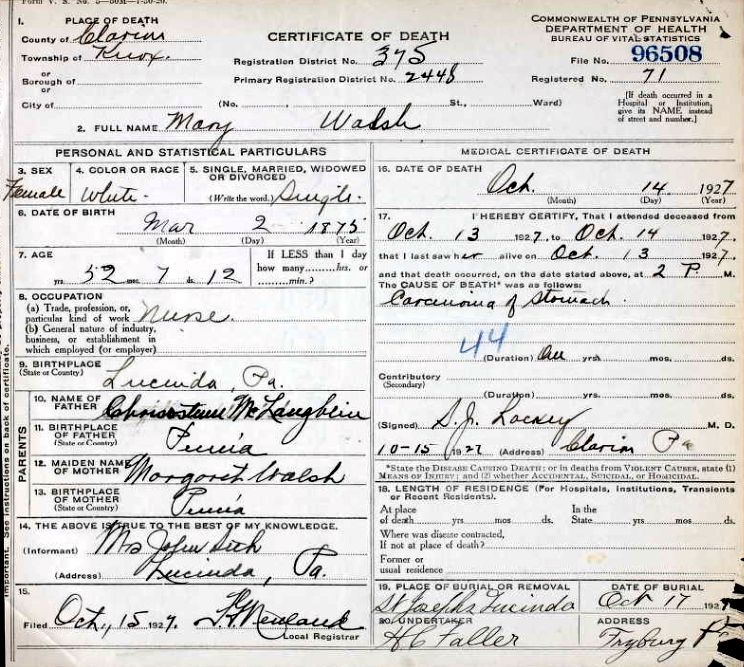 Form V. S. No. 5—50M-1-30-26.
1. PLACE OF DEATH
County of Clarion
Township of Knox.
or
Borough of
or
City of
CERTIFICATE OF DEATH
Registration District No. 375
Primary Registration District No. 2448
(No. St., Ward)
COMMONWEALTH OF PENNSYLVANIA
DEPARTMENT OF HEALTH
BUREAU OF VITAL STATISTICS
File No. 96508
Registered No. 71
[If death occurred in a
Hospital or Institution,
give its NAME instead
of street and number.]
2. FULL NAME Mary Walsh
PERSONAL AND STATISTICAL PARTICULARS
3. SEX
Female
4. COLOR OR RACE
White
5. SINGLE, MARRIED, WIDOWED
OR DIVORCED
(Write the word.) Single
6. DATE OF BIRTH
Mar 2 1875
(Month) (Day) (Year)
7. AGE
yrs. 52 mos. 7 ds. 12
If LESS than 1 day
how many........hrs. or
........min.?
8. OCCUPATION
(a) Trade, profession, or,
particular kind of work Nurse.
(b) General nature of industry,
business, or establishment in
which employed (or employer)
9. BIRTHPLACE
(State or Country)
Lucinda, Pa.
PARENTS
10. NAME OF
FATHER McLaughlin
11. BIRTHPLACE
OF FATHER
(State or Country)
12. MAIDEN NAME
OF MOTHER Margaret Walsh
13. BIRTHPLACE
OF MOTHER
(State or Country)
14. THE ABOVE IS TRUE TO THE BEST OF MY KNOWLEDGE.
(Informant) Mrs John
(Address) Lucinda, Pa.
15.
Filed Oct, 15 1927.
Local Registrar
MEDICAL CERTIFICATE OF DEATH
16. DATE OF DEATH
Oct. 14 1927
(Month) (Day) (Year)
17. I HEREBY CERTIFY, That I attended deceased from
Oct. 13 1927, to Oct. 14 1927.
that I last saw her alive on Oct. 13 1927.
and that death occurred, on the date stated above, at 2 P. M.
The CAUSE OF DEATH* was as follows:
Carcinoma of Stomach.
44
(Duration) One yrs. mos. ds.
Contributory
(Secondary)
(Duration) yrs. mos. ds.
(Signed) M. D.
10-15 1927 (Address) Clarion Pa
*State the DISEASE CAUSING DEATH; or in deaths from VIOLENT CAUSES, state (1)
MEANS OF INJURY; and (2) whether ACCIDENTAL, SUICIDAL, or HOMICIDAL.
18. LENGTH OF RESIDENCE (For Hospitals, Institutions, Transients
or Recent Residents).
At place
of death yrs. mos. ds.
In the
State yrs. mos. ds.
Where was disease contracted,
If not at place of death?
Former or
usual residence
19. PLACE OF BURIAL OR REMOVAL
St Josephs Lucinda
DATE OF BURIAL
Oct 17 1927
20. UNDERTAKER
H C Faller
ADDRESS
Fryburg Pa
important. See instructions on back of certificate.